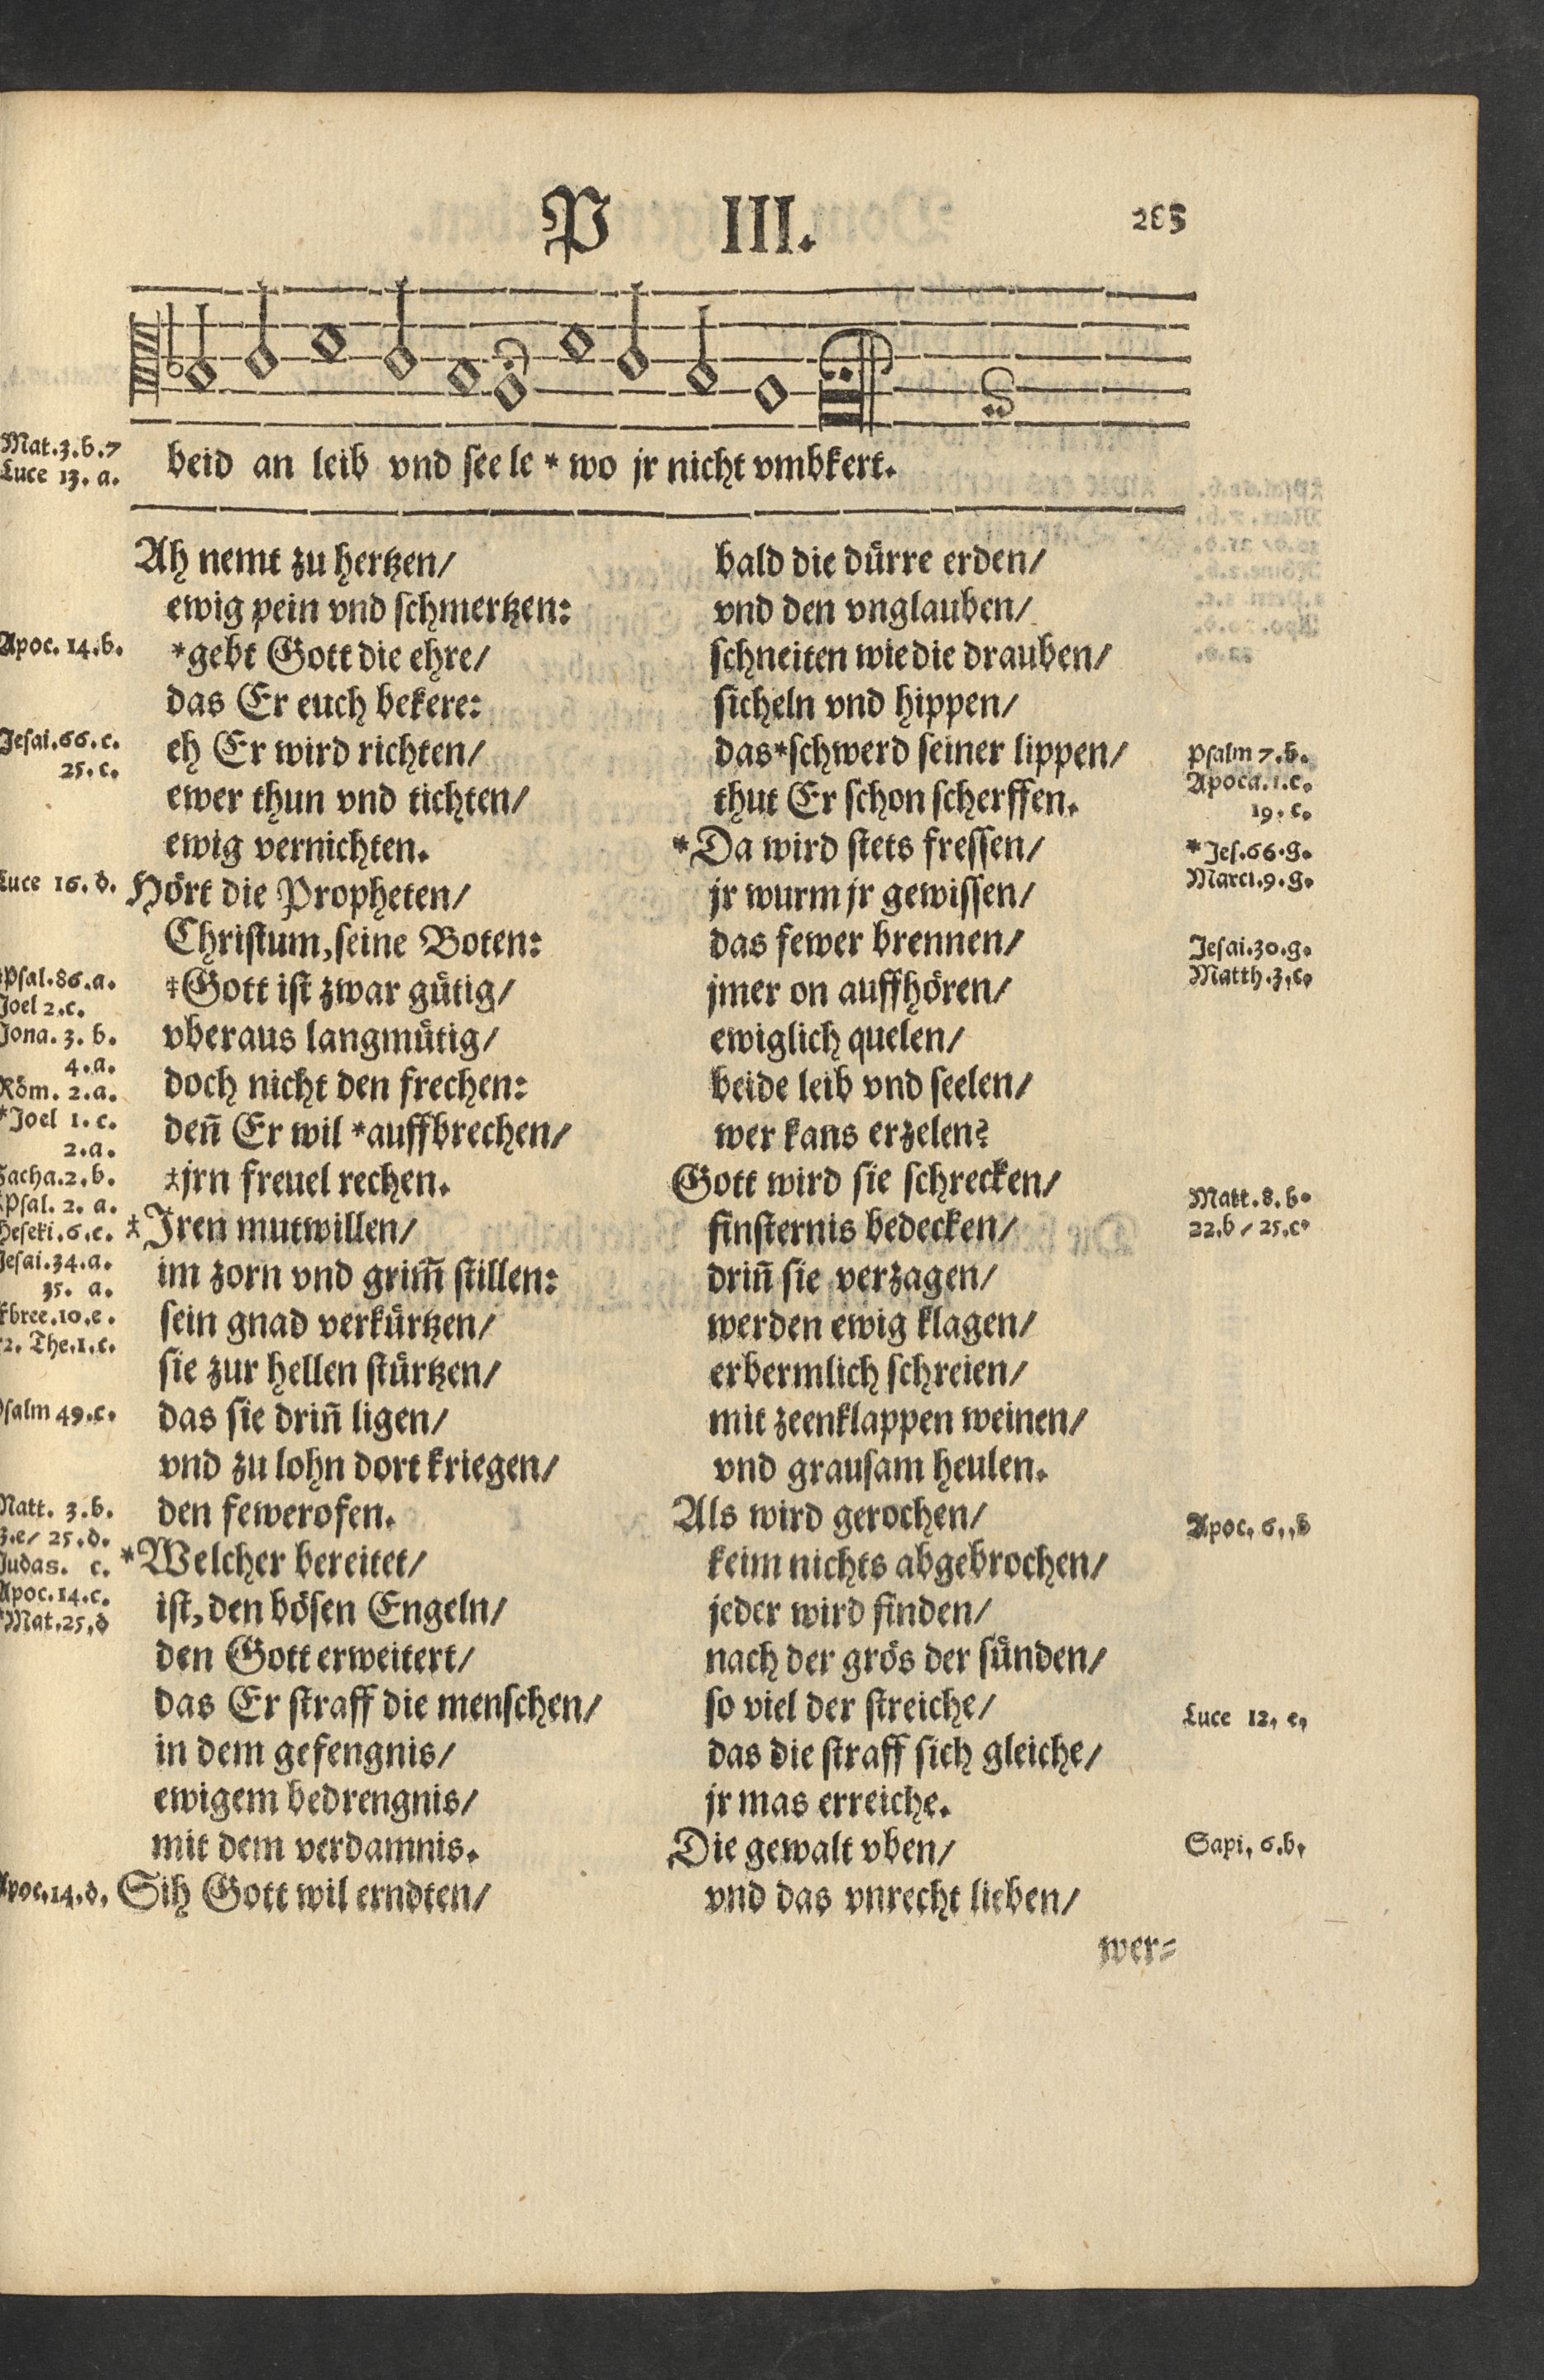 P III. 283
beid an leib vnd see le * wo jr nicht vmbkert.
Mat.3.b.7
Luce 13. a.
Ah nemt zu hertzen/
ewig pein vnd schmertzen:
*gebt Gott die ehre/
das Er euch bekere:
eh Er wird richten/
ewer thun vnd tichten/
ewig vernichten.
Hoͤrt die Propheten/
Christum, seine Boten:
‡Gott ist zwar guͤtig/
vberaus langmuͤtig/
doch nicht den frechen:
deñ Er wil *auffbrechen/
‡jrn freuel rechen.
‡Jren mutwillen/
im zorn vnd grim̃ stillen:
sein gnad verkuͤrtzen/
sie zur hellen stuͤrtzen/
das sie driñ ligen/
vnd zu lohn dort kriegen/
den fewerofen.
*Welcher bereitet/
ist, den boͤsen Engeln/
den Gott erweitert/
das Er straff die menschen/
in dem gefengnis/
ewigem bedrengnis/
mit dem verdamnis.
Sih Gott wil erndten/
Apoc. 14.b.
Jesai.66.c.
25.c.
Luce 16.d.
Psal.86.a.
Joel 2.c.
Jona. 3. b.
4.a.
Roͤm. 2.a.
*Joel 1. c.
2.a.
Zacha.2.b.
‡Psal. 2. a.
Heseki.6.c.
Jesai.34.a.
35. a.
Ebree.10.e.
2. The.1.c.
Psalm 49.c.
Matt. 3.b.
3.e/ 25.d.
Judas. c.
Apoc.14.c.
*Mat.25.d
Apoc.14.d.
bald die duͤrre erden/
vnd den vnglauben/
schneiten wie die drauben/
sicheln vnd hippen/
das*schwerd seiner lippen/
thut Er schon scherffen.
*Da wird stets fressen/
jr wurm jr gewissen/
das fewer brennen/
jmer on auffhoͤren/
ewiglich quelen/
beide leib vnd seelen/
wer kans erzelen?
Gott wird sie schrecken/
finsternis bedecken/
driñ sie verzagen/
werden ewig klagen/
erbermlich schreien/
mit zeenklappen weinen/
vnd grausam heulen.
Als wird gerochen/
keim nichts abgebrochen/
jeder wird finden/
nach der groͤs der suͤnden/
so viel der streiche/
das die straff sich gleiche/
jr mas erreiche.
Die gewalt vben/
vnd das vnrecht lieben/
wer⸗
Psalm 7.b.
Apoca.1.c.
19. c.
*Jes.66.g.
Marci.9.g.
Jesai.30.g.
Matth.3.c.
Matt.8.b.
22.b / 25.c.
Apoc. 6..b
Luce 12. e.
Sapi. 6.b.